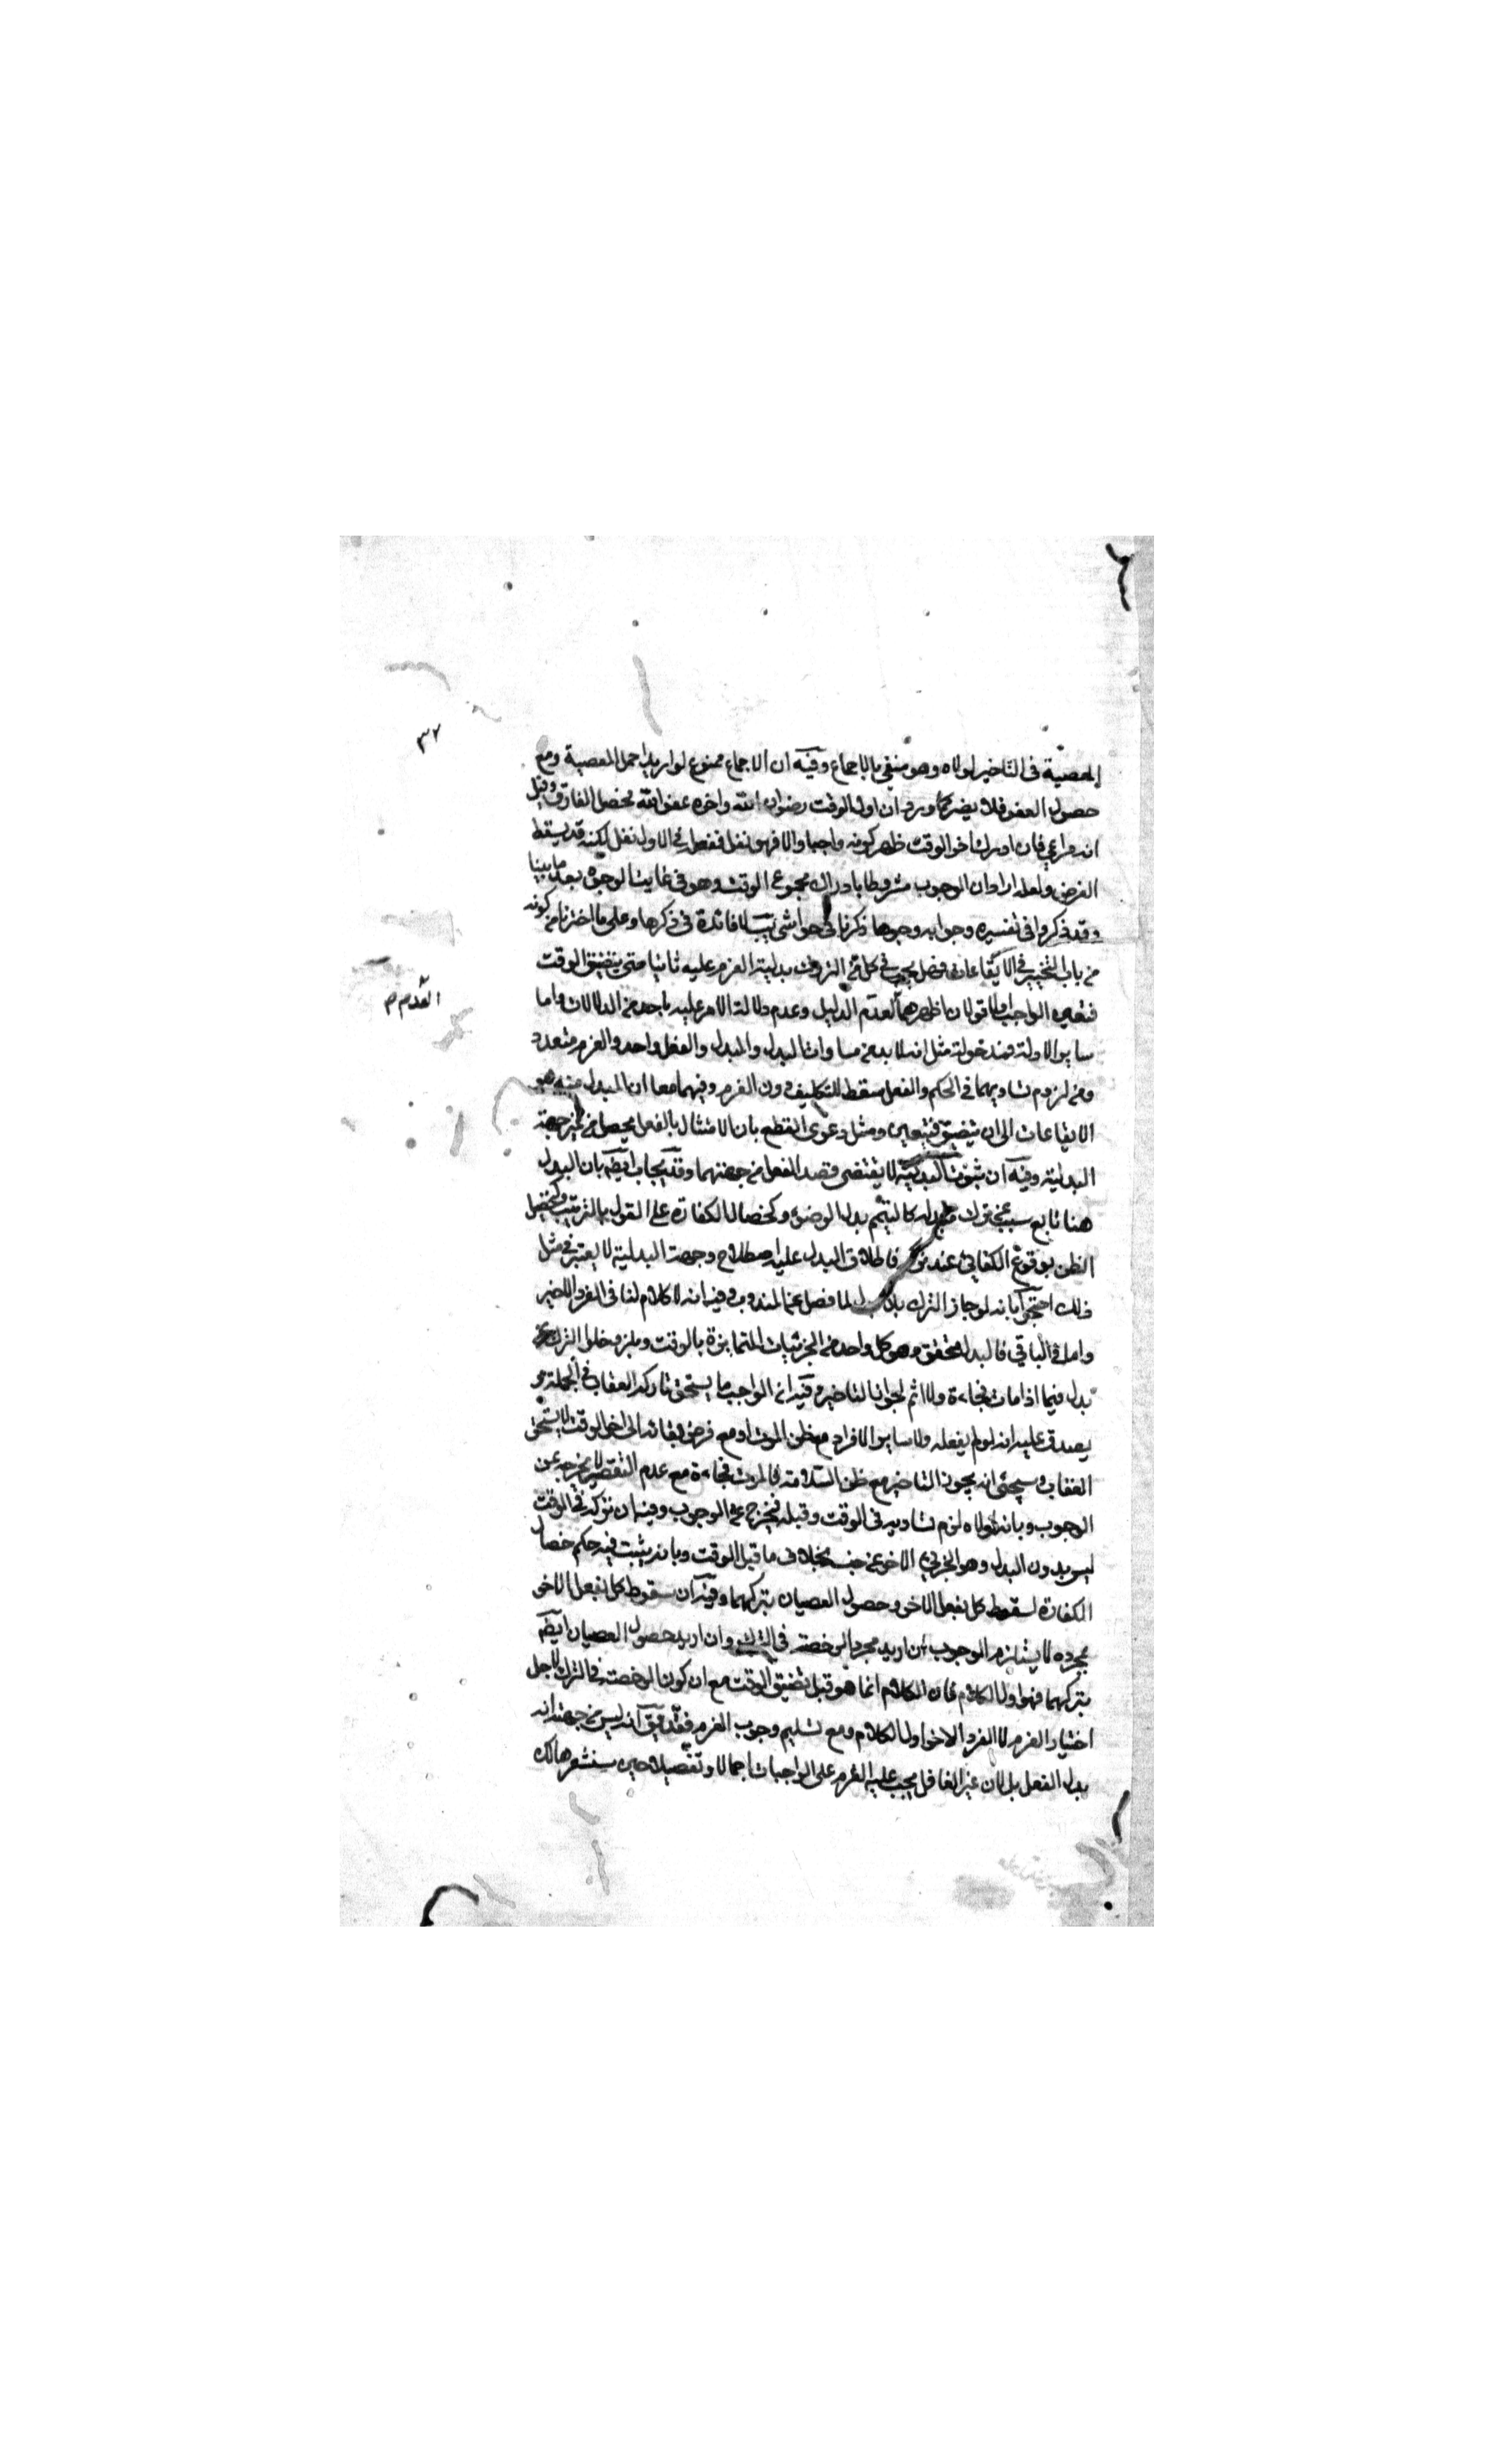 ٣٢
المعصية فى التاخير لولاه وهو منفي بالاجماع وفيه ان الاجماع ممنوع لو اريد اصل المعصية ومع
حصول العفو فلا يضر كما ورد ان اول الوقت رضوان الله واخره عفو الله فحصل الفارق وقيل
انه مراعى فان ادرك اخر الوقت ظهر كونه واجبا والا فهو نفل ففعله فى الاول نفل لكنه قد يسقط
الفرض ولعله اراد ان الوجوب مشروط بادراك مجموع الوقت وهو فى غاية بعد ما بينا
وقد ذكروا فى تفسيره وجوابه وجوها ذكرنا فى حواشى لا فائدة فى ذكرها وعلى ما اخترنا من كونه
من باب التخيير فى الايقاعات فهل يجب فى كل الترك بدلية العزم عليه ثانيا متى يتضيق الوقت
فيتعين الواجب ام لا قولان اظهرهما لعدم الدليل وعدم دلالة الامر عليه باحد من الدلالات واما
القدم م
ساير الادلة فمدخولة مثل انه لا بد من مساواة البدل والمبدل والفعل واحد والعزم متعدد
ومن لزوم تساويهما فى الحكم والفعل مسقط للتكليف دون العزم وفيهما معا ان المبدل منه هو
الايقاعات الى ان يتضيق فيتعين ومثل دعوى القطع بان الامتثال بالفعل يحصل من غير جهة
البدلية وفيه ان ثبوت البدلية لا يقتضى قصد الفعل من جهتهما وقد يجاب ايضا بان البدل
هنا تابع سبب عن ترك مبدله كالتيمم بدل الوضوء وكخصال الكفارة على القول بالترتيب وكتحصيل
الظن بوقوع الكفائي عند فاطلاق البدل عليه اصطلاح وجهة البدلية لا يعتبر فى مثل
ذلك احتجوا بانه لو جاز الترك بلا بدل لما فصل عن المندوب وفيه انه لا كلام لنا فى الفرد الاخير
واما فى الباقي فالبدل متحقق وهو كل واحد من الجزئيات المتمايزة بالوقت ويلزم خلو الترك عن
بدل فيما اذا مات فجاءة ولا اثم لجواز التاخير وفيه ان الواجب ما يستحق تاركه العقاب فى الجملة وهو
يصدق عليه انه لو لم يفعله ولا ساير الافراد مع ظن الموت او مع فرض بقائه الى اخر الوقت لاستحق
العقاب وسيجئ انه يجوز التاخير مع ظن السلامة فالموت فجاءة مع عدم التقصير لا يخرجه عن
الوجوب وبانه لولاه لزم تساويه فى الوقت وقبله فيخرج عن الوجوب وفيه ان تركه فى الوقت
ليس بدون البدل وهو الجزئي الاخر من جنسه بخلاف ما قبل الوقت وبانه يثبت فيه حكم خصال
الكفارة لسقوط كل بفعل الاخر وحصول العصيان بتركهما وفيه ان سقوط كل بفعل الاخر
بمجرده لا يستلزم الوجوب ان اريد مجرد الرخصة فى الترك وان اريد حصول العصيان ايضا
بتركهما فهو اول الكلام فان الكلام انما هو قبل تضيق الوقت مع ان كون الرخصة فى الترك لاجل
اختيار العزم لا الفرد الاخر اول الكلام ومع تسليم وجوب العزم فقد يق انه ليس من جهة انه
بدل الفعل بل لان غير الغافل يجب عليه العزم على الواجبات اجمالا وتفصيلا حين